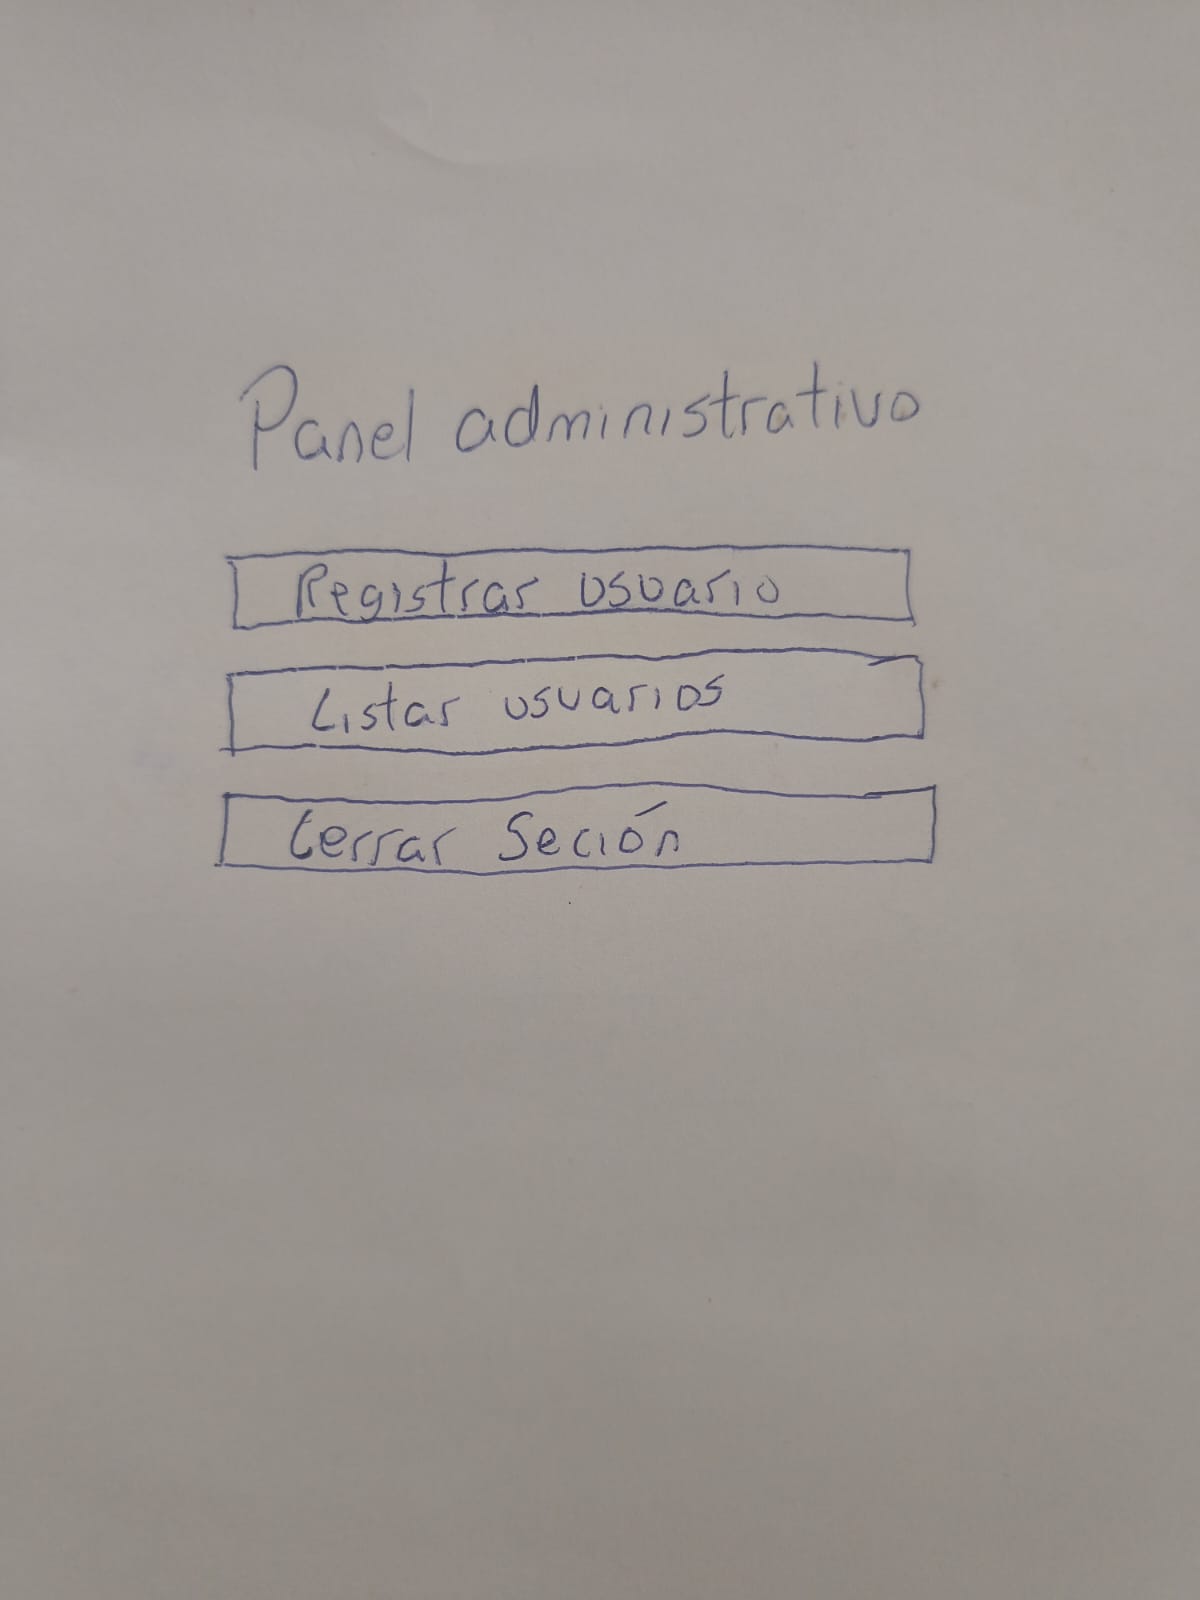 Panel administrativo
Registrar usuario
Listar usuarios
Cerrar Seción